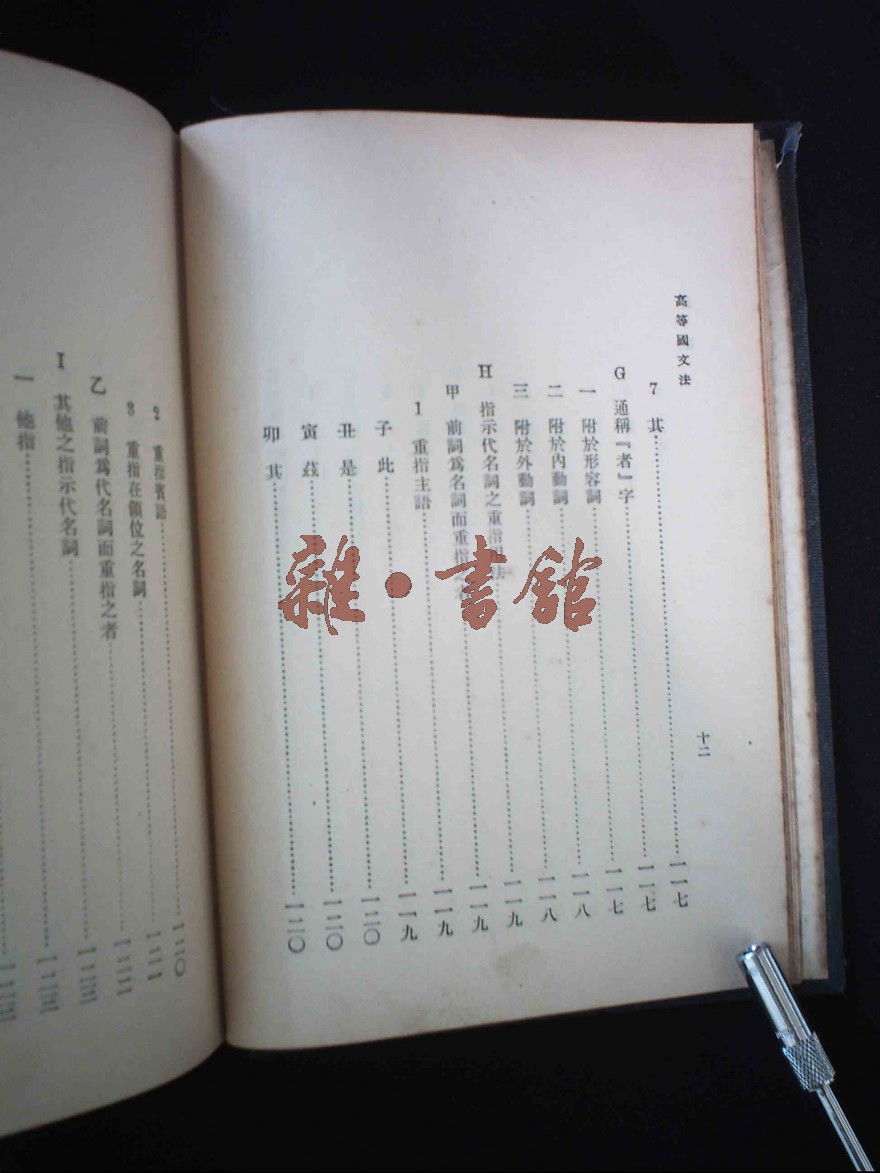 高等國文法
十二
7 其……一一七
G 通稱『者』字……一一七
一 附於形容詞……一一七
二 附於內動詞……一一八
三 附於外動詞……一一八
H 指示代名詞之重指法……一一九
甲 前詞爲名詞而重指之者……一一九
1 重指主語……一一九
子 此……一一九
丑 是……一二〇
寅 茲……一二〇
卯 其……一二〇
2 重指賓語……一二〇
3 重指在領位之名詞
乙 前詞爲代名詞而重指之者
I 其他之指示代名詞
一 他指
雜·書館